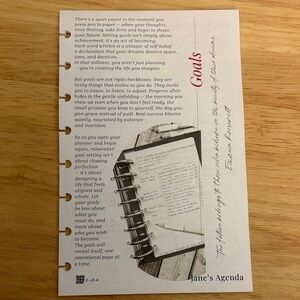 There's a quiet power in the moment you
press pen to paper — when your thoughts,
once fleeting, take form and begin to shape
your future. Setting goals isn't simply about
achievement, it's an act of becoming.
Each word written is a whisper of self-belief,
a declaration that your dreams deserve space,
time, and devotion.
In that stillness, you aren't just planning
— you're creating the life you imagine.
But goals are not rigid checkboxes; they are
living things that evolve as you do. They invite
you to pause, to listen, to adjust. Progress often
hides in the gentle unfolding: the morning you
show up even when you don't feel ready, the
small promise you keep to yourself, the day you
give grace instead of guilt. Real success blooms
quietly, nourished by patience
and intention.
So as you open your
planner and begin
again, remember:
goal setting isn't
about chasing
perfection
— it's about
designing a
life that feels
aligned and
whole. Let
your goals
be less about
what you
must do, and
more about
who you wish
to become.
The path will
reveal itself, one
intentional page at
a time.
Goals
"The future belongs to those who believe in the beauty of their dreams."
Eleanor Roosevelt
Jane's Agenda